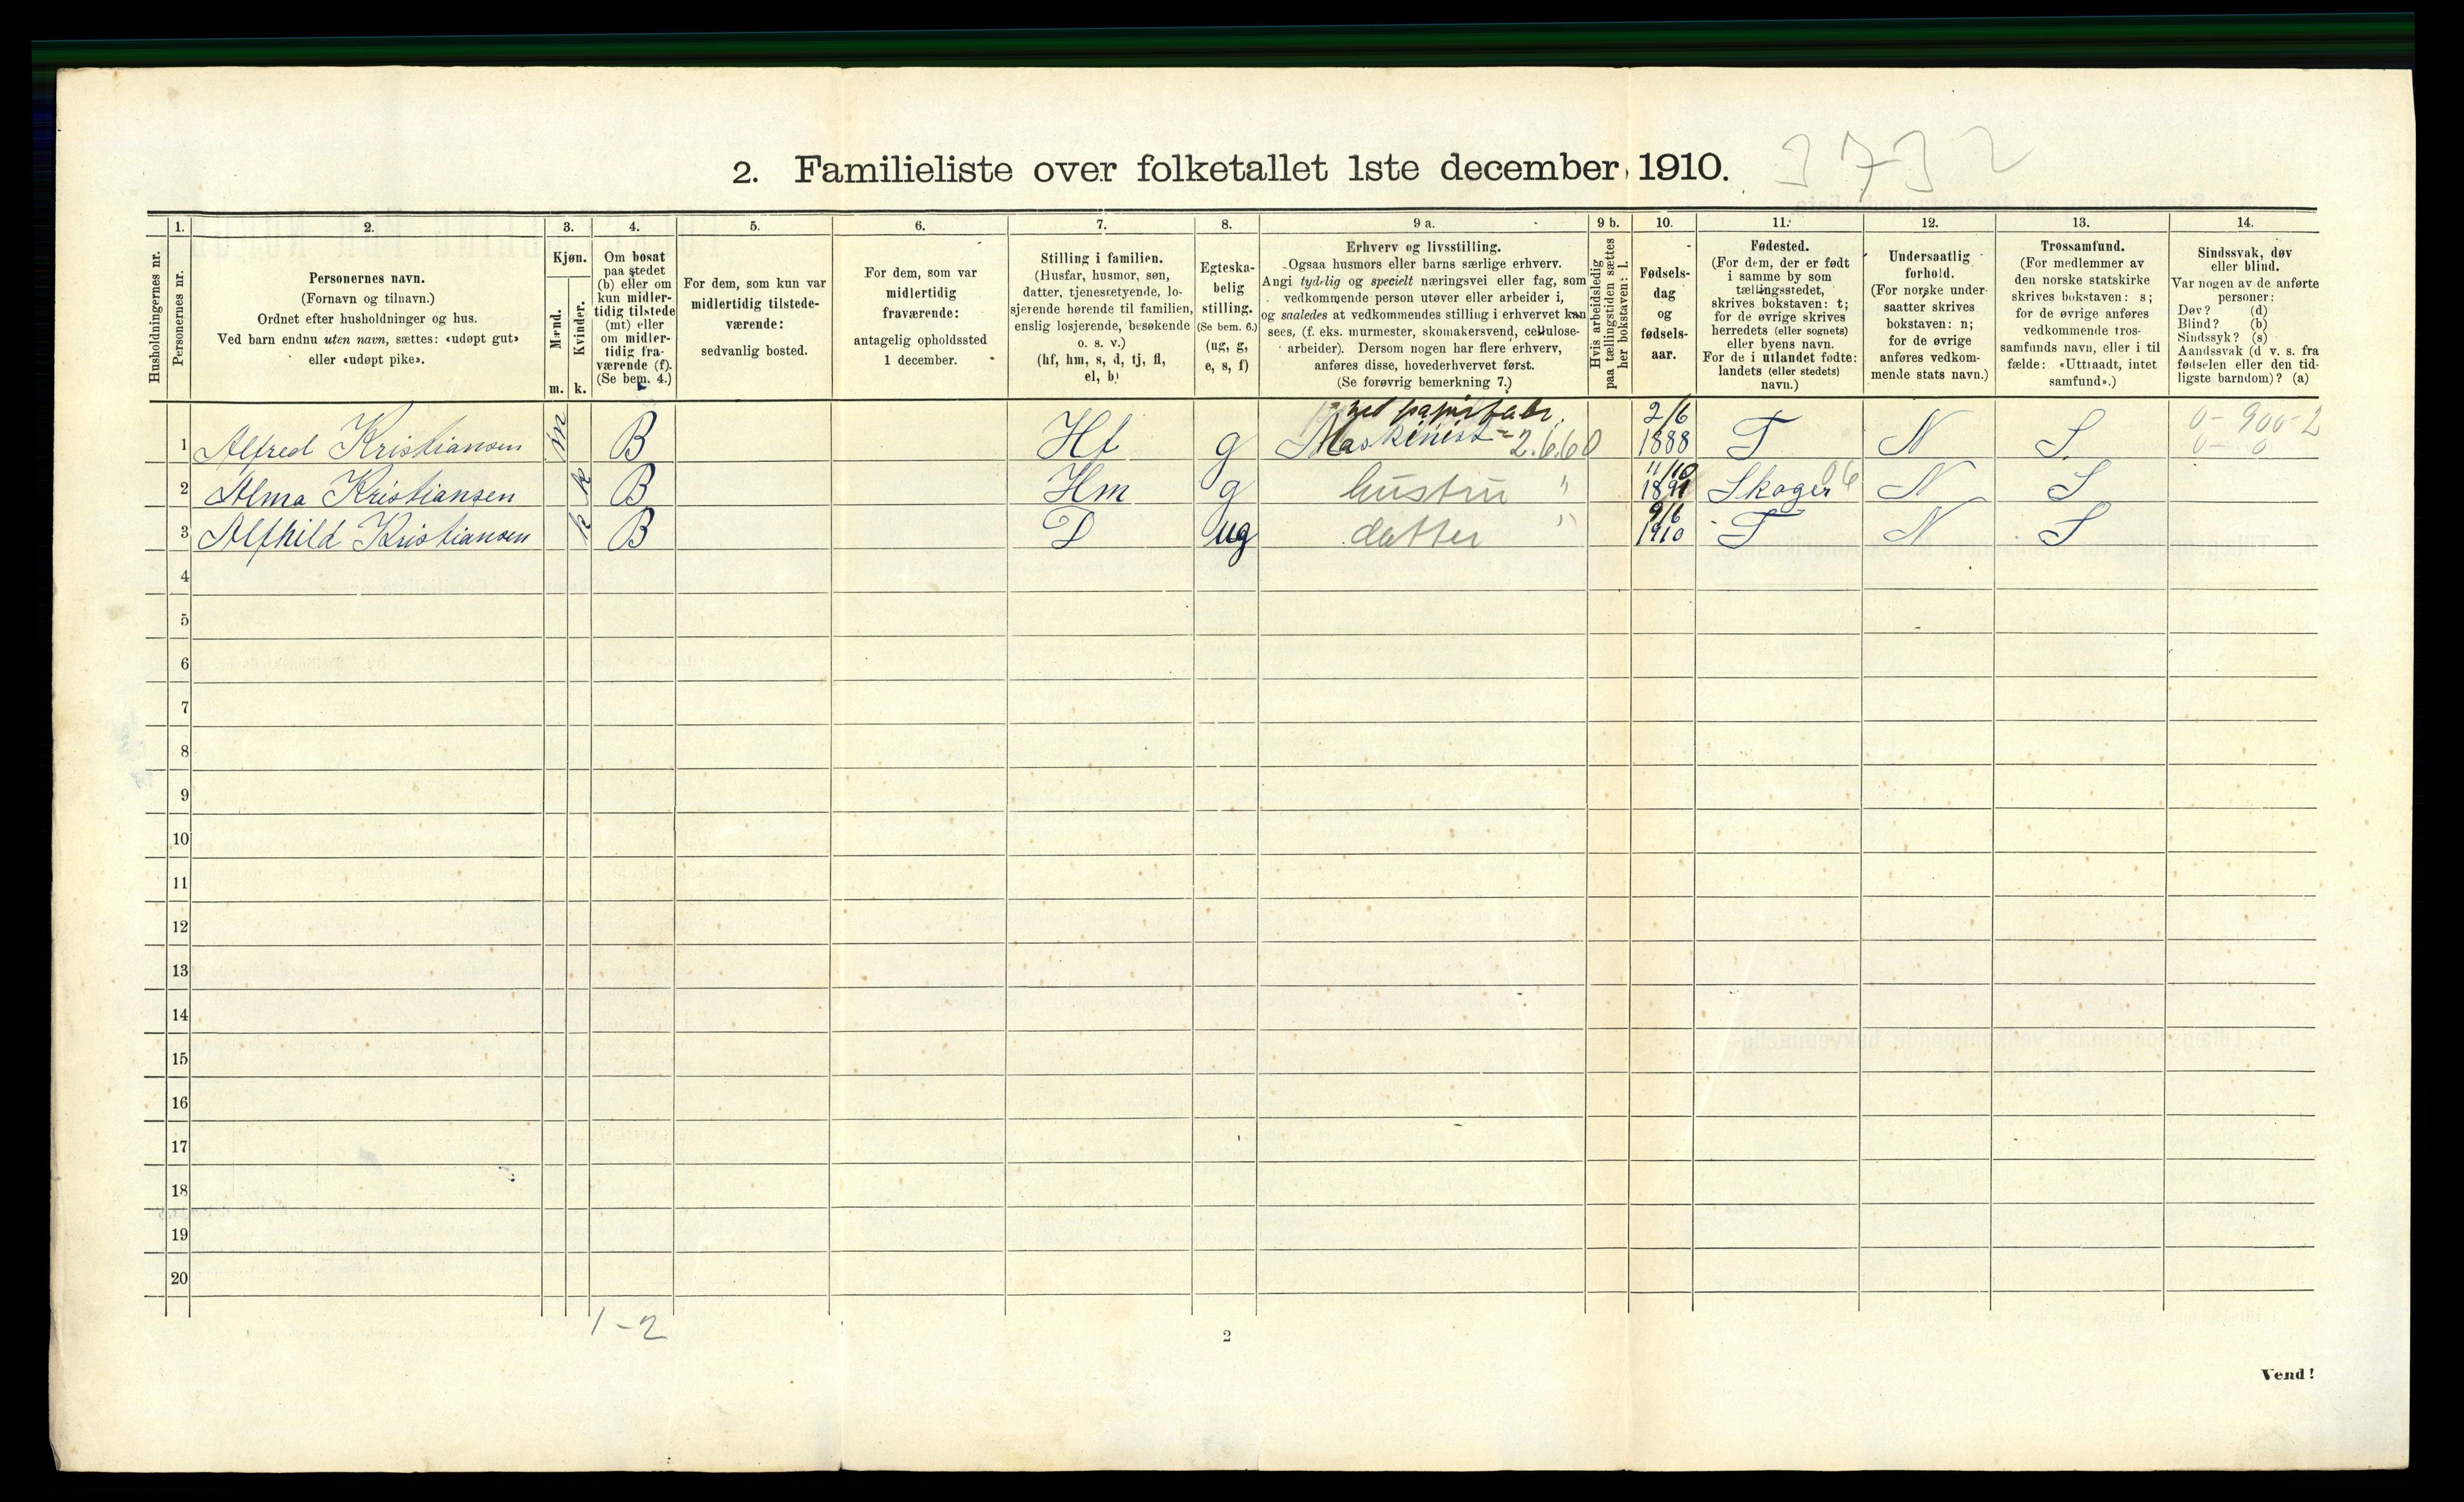 2. Familieliste over folketallet 1ste december 1910.
3732
Husholdningernes nr.
1.
Personernes nr.
2.
Personernes navn.
(Fornavn og tilnavn.)
Ordnet efter husholdninger og hus.
Ved barn endnu uten navn, sættes: «udøpt gut»
eller «udøpt pike».
3.
Kjøn.
Mænd.
m.
Kvinder.
k.
4.
Om bosat
paa stedet
(b) eller om
kun midler-
tidig tilstede
(mt) eller
om midler-
tidig fra-
værende (f).
(Se bem. 4.)
5.
For dem, som kun var
midlertidig tilstede-
værende:
sedvanlig bosted.
6.
For dem, som var
midlertidig
fraværende:
antagelig opholdssted
1 december.
7.
Stilling i familien.
(Husfar, husmor, søn,
datter, tjenestetyende, lo-
sjerende hørende til familien,
enslig losjerende, besøkende
o. s. v.)
(hf, hm, s, d, tj, fl,
el, b)
8.
Egteska-
belig
stilling.
(Se bem. 6.)
(ug, g,
e, s, f)
9 a.
Erhverv og livsstilling.
Ogsaa husmors eller barns særlige erhverv.
Angi tydelig og specielt næringsvei eller fag, som
vedkommende person utøver eller arbeider i,
og saaledes at vedkommendes stilling i erhvervet kan
sees, (f. eks. murmester, skomakersvend, cellulose-
arbeider). Dersom nogen har flere erhverv,
anføres disse, hovederhvervet først.
(Se forøvrig bemerkning 7.)
9 b.
Hvis arbeidsledig
paa tællingstiden sættes
her bokstaven: l.
10.
Fødsels-
dag
og
fødsels-
aar.
11.
Fødested.
(For dem, der er født
i samme by som
tællingsstedet,
skrives bokstaven: t;
for de øvrige skrives
herredets (eller sognets)
eller byens navn.
For de i utlandet fødte:
landets (eller stedets)
navn.)
12.
Undersaatlig
forhold.
(For norske under-
saatter skrives
bokstaven: n;
for de øvrige
anføres vedkom-
mende stats navn.)
13.
Trossamfund.
(For medlemmer av
den norske statskirke
skrives bokstaven: s;
for de øvrige anføres
vedkommende tros-
samfunds navn, eller i til
fælde: «Uttraadt, intet
samfund».)
14.
Sindssvak, døv
eller blind.
Var nogen av de anførte
personer:
Døv? (d)
Blind? (b)
Sindssyk? (s)
Aandssvak (d v. s. fra
fødselen eller den tid-
ligste barndom)? (a)
1 Alfred Kristiansen m B Hf g ved papirfabr. Maskinist 2.6.60 2/6 1888 T N S 0-900-2 0-0
2 Alma Kristiansen k B Hm g hustru " 11/10 1891 Skoger 06 N S
3 Alfhild Kristiansen k B D ug datter " 9/6 1910 T N S
4
5
6
7
8
9
10
11
12
13
14
15
16
17
18
19
20
1-2
2
Vend!